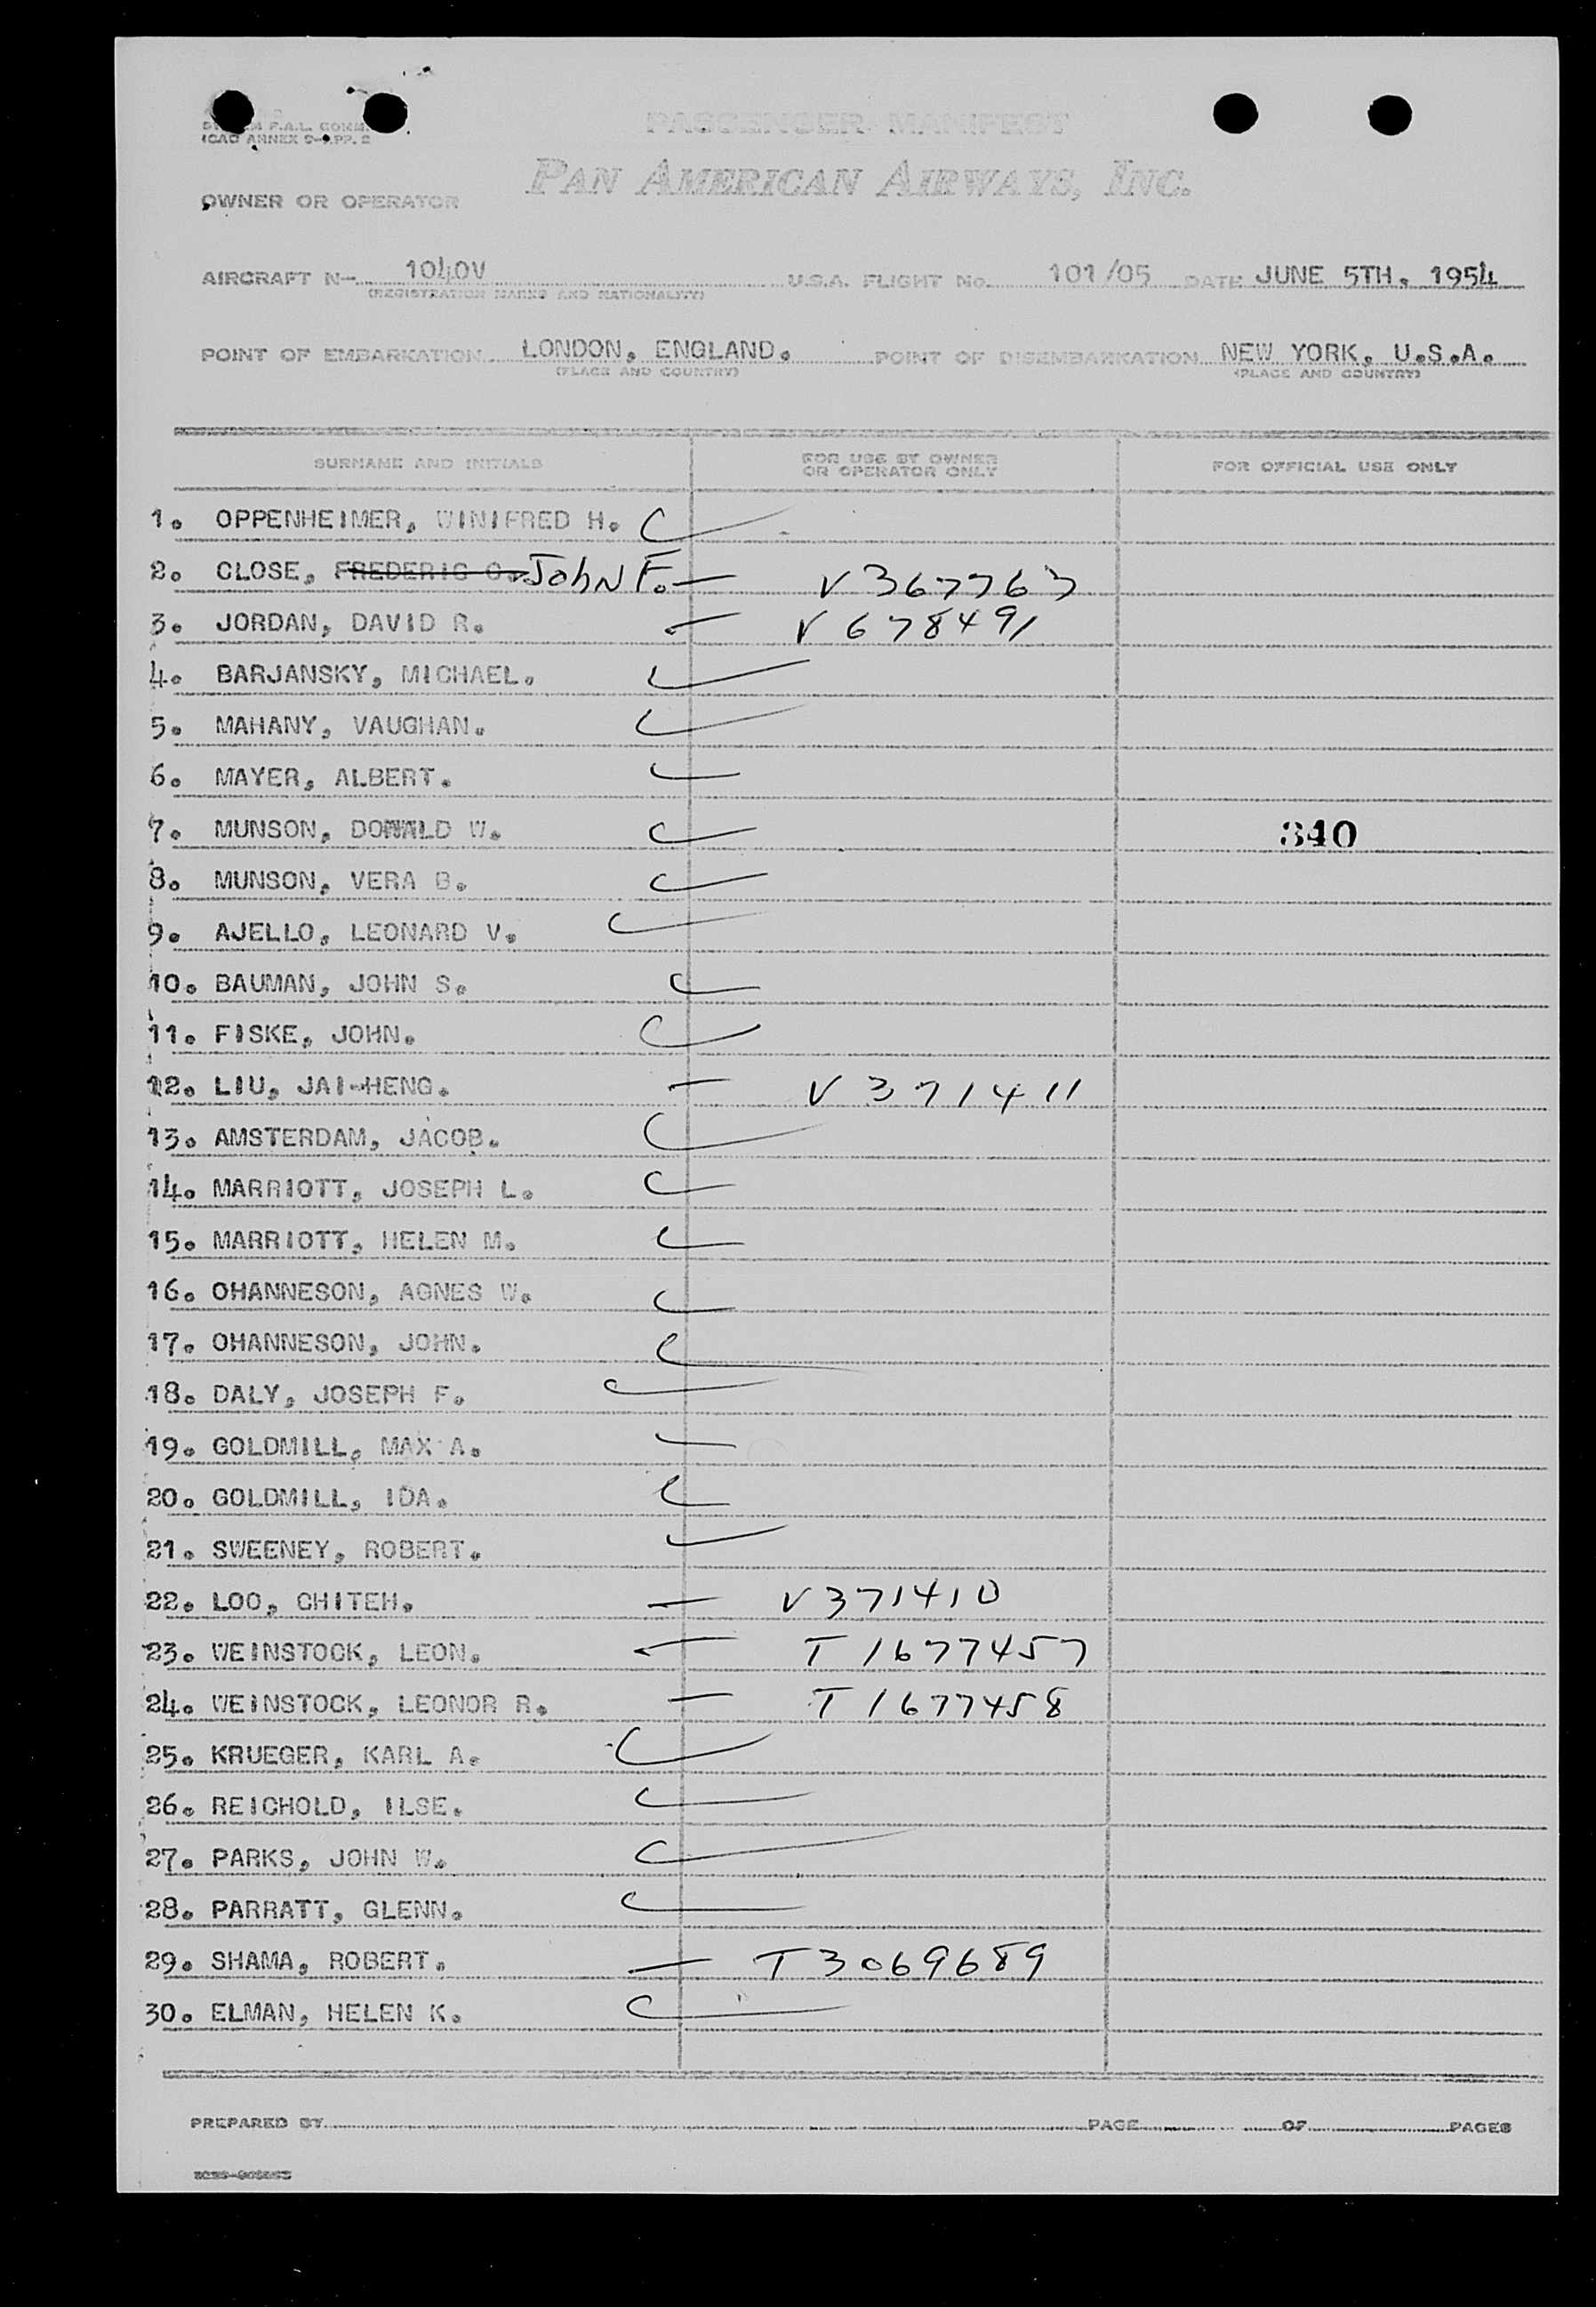 PASSENGER MANIFEST
F.A.L. COMM.
ICAO ANNEX 9-APP. 2
PAN AMERICAN AIRWAYS, INC.
OWNER OR OPERATOR
AIRCRAFT N- 1040V U.S.A. FLIGHT No. 101/05 DATE JUNE 5TH, 1954
(REGISTRATION MARKS AND NATIONALITY)
POINT OF EMBARKATION LONDON, ENGLAND. POINT OF DISEMBARKATION NEW YORK, U.S.A.
(PLACE AND COUNTRY) (PLACE AND COUNTRY)
SURNAME AND INITIALS FOR USE BY OWNER OR OPERATOR ONLY FOR OFFICIAL USE ONLY
1. OPPENHEIMER, WINIFRED H.
2. CLOSE, FREDERIC O. John F. — V 367763
3. JORDAN, DAVID R. — V 678491
4. BARJANSKY, MICHAEL.
5. MAHANY, VAUGHAN.
6. MAYER, ALBERT.
7. MUNSON, DONALD W. 340
8. MUNSON, VERA B.
9. AJELLO, LEONARD V.
10. BAUMAN, JOHN S.
11. FISKE, JOHN.
12. LIU, JAI-HENG. — V 371411
13. AMSTERDAM, JACOB.
14. MARRIOTT, JOSEPH L.
15. MARRIOTT, HELEN M.
16. OHANNESON, AGNES W.
17. OHANNESON, JOHN.
18. DALY, JOSEPH F.
19. GOLDMILL, MAX A.
20. GOLDMILL, IDA.
21. SWEENEY, ROBERT.
22. LOO, CHITEH. — V371410
23. WEINSTOCK, LEON. — T 1677457
24. WEINSTOCK, LEONOR R. — T 1677458
25. KRUEGER, KARL A.
26. REICHOLD, ILSE.
27. PARKS, JOHN W.
28. PARRATT, GLENN.
29. SHAMA, ROBERT. — T3069689
30. ELMAN, HELEN K.
PREPARED BY PAGE OF PAGES